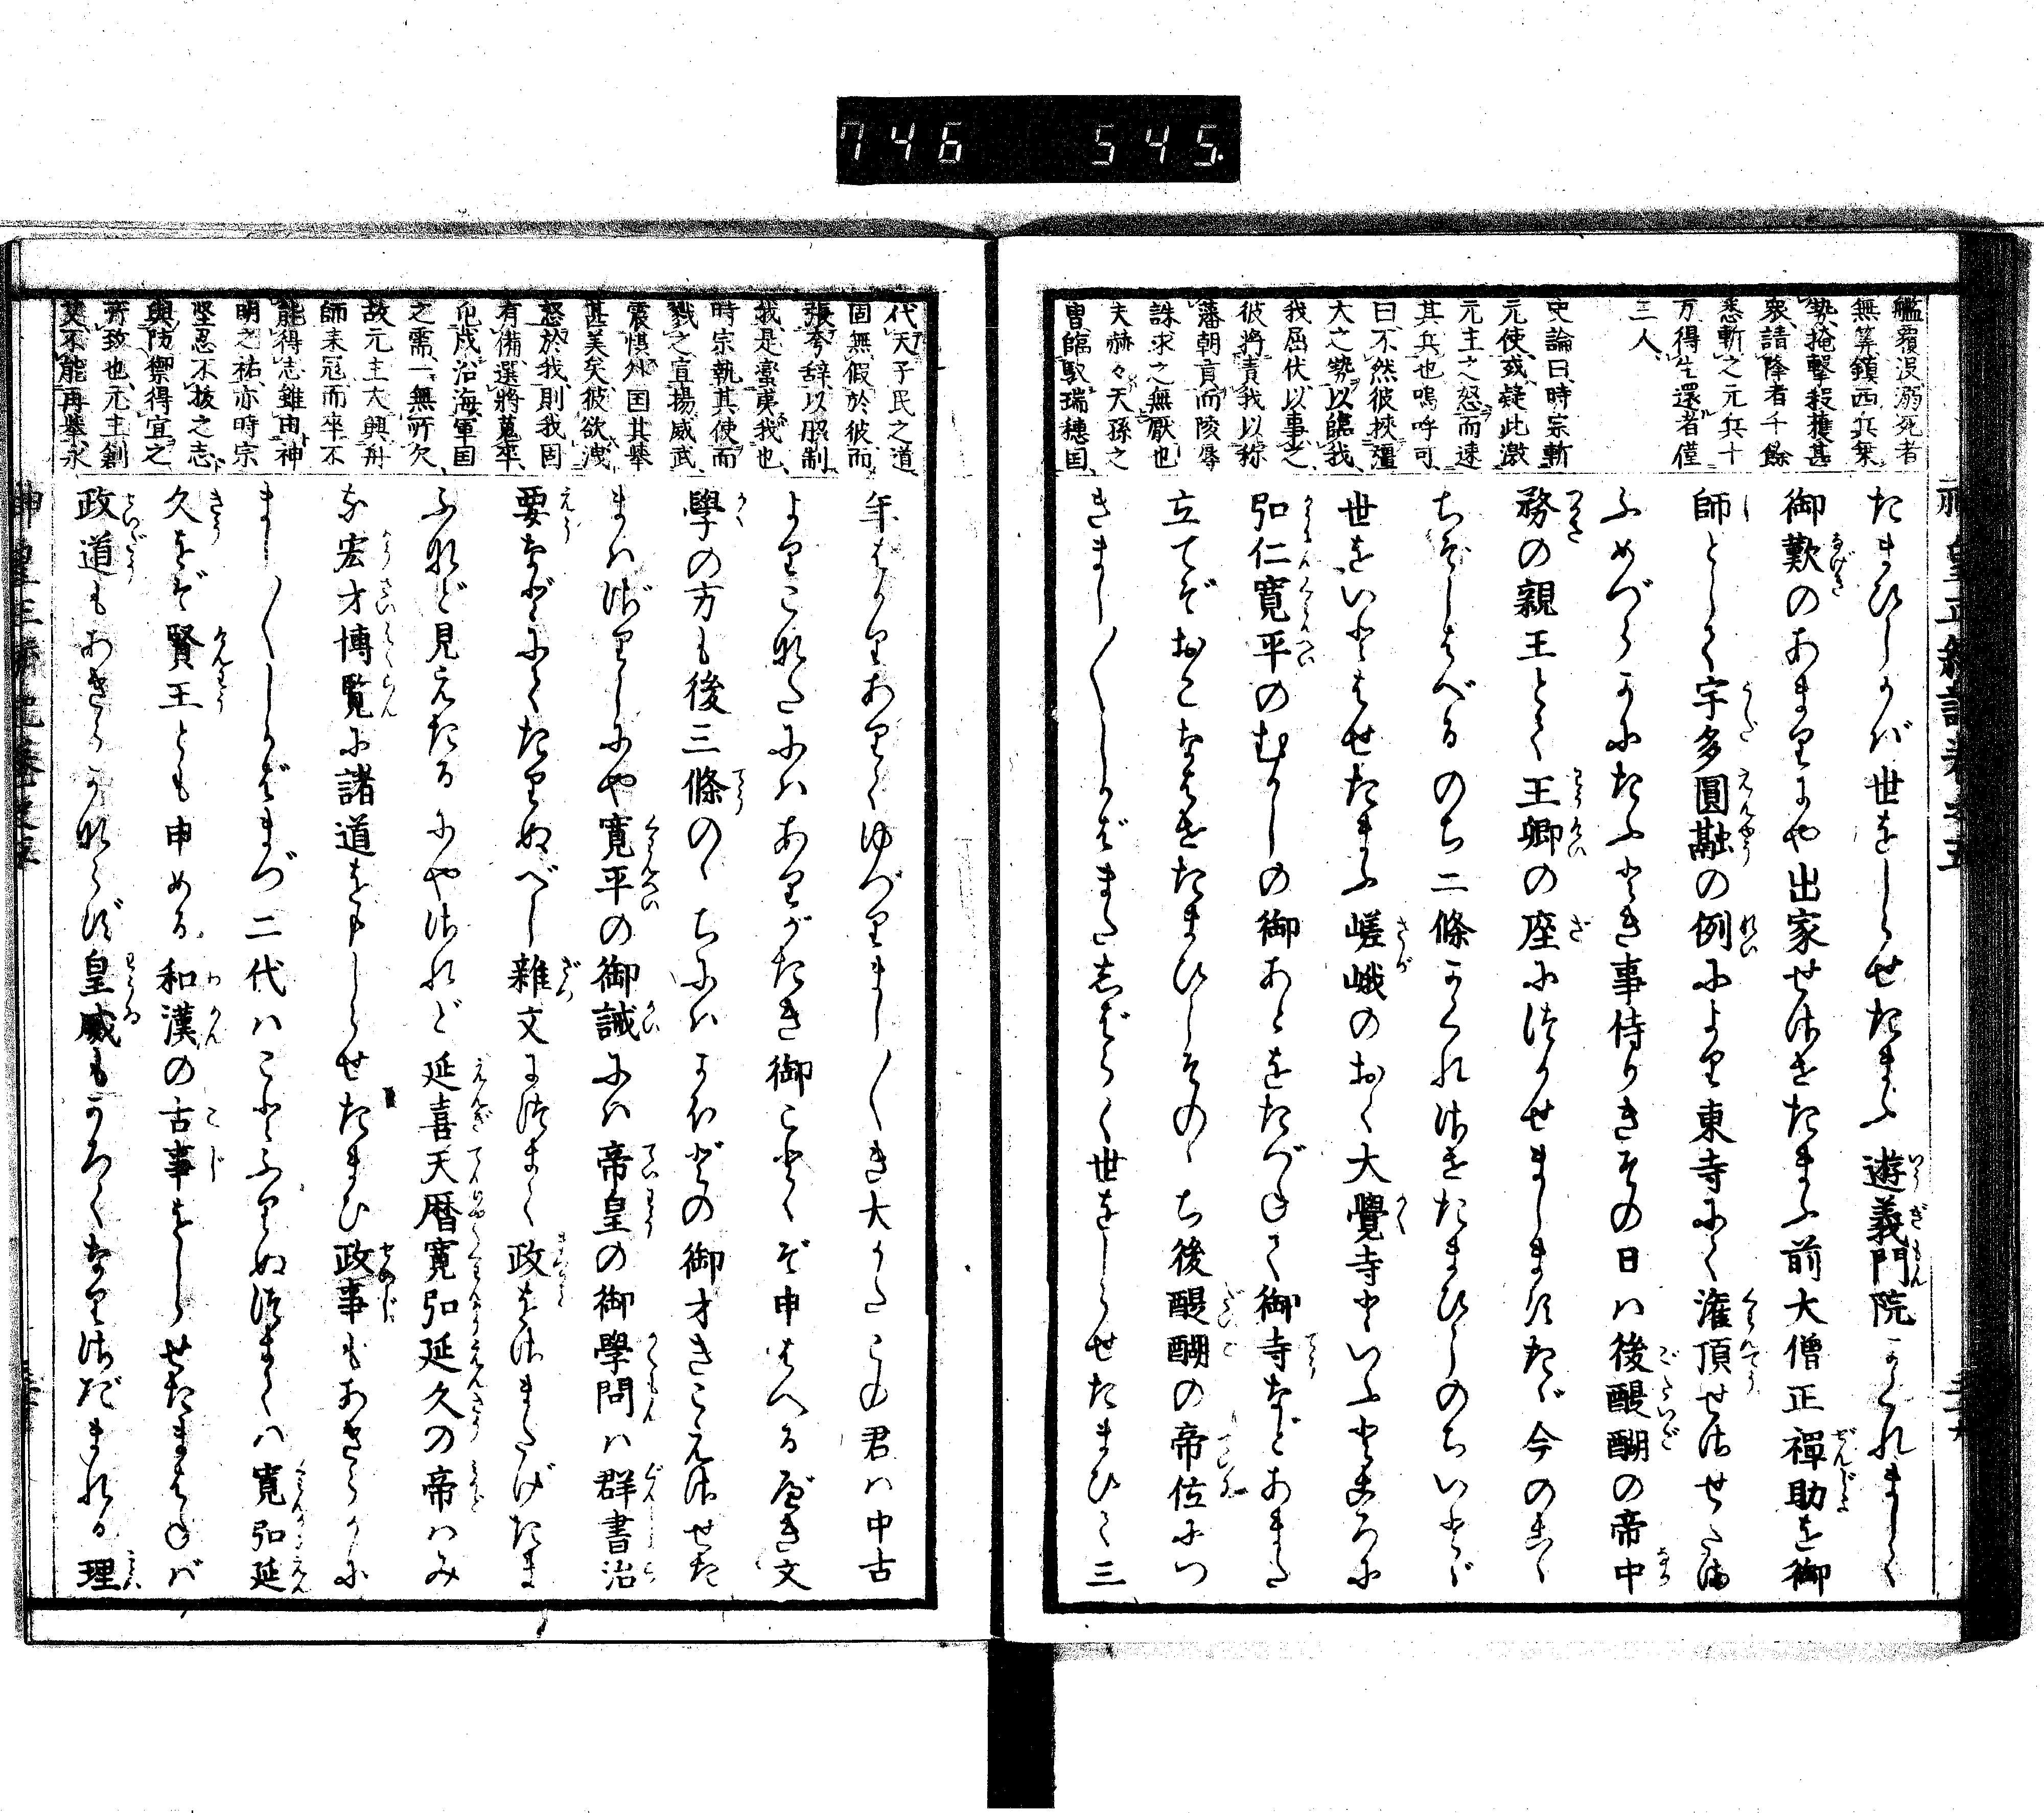 746 545.
艦覆没溺死者
無筭鎮西兵乗
勢掩撃殺獲甚
衆請降者千餘
悉斬之元兵十
万得生還者僅
三人
史論曰時宗斬
元使或疑此激
元主之怒而速
其兵也嗚呼可
曰不然彼挾彊
大之勢以臨我
我屈伏以事之
彼将責我以称
藩朝貢而陵辱
誅求之無厭也
夫赫々天孫之
曽臨馭瑞穂国
たまひしかば世をしらせたまふ遊義門院かくれまして
御歎のあまりにや出家せさせたまふ前大僧正禪助を御
師として宇多圓融の例により東寺にて潅頂せさせたま
ふめづらかにたふとき事侍りきその日は後醍醐の帝中
務の親王とて王卿の座につかせましますたゞ今のこゝ
ちぞしはべるのち二條かくれさせたまひしのちいとゞ
世をいとはせたまふ嵯峨のおく大覺寺といふところに
弘仁寛平のむかしの御あとをたづねて御寺などあまた
立てぞおこなはせたまひしそのゝち後醍醐の帝位につ
きまし〳〵しかばまたしばらく世をしらせたまひて三
代天子民之道
固無假於彼而
張夸辞以脅制
我是蛮夷我也
時宗執其使而
戮之宣揚威武
震惧外国其挙
甚美矣彼欲洩
怒於我則我固
有備選将蒐卒
戍沿海軍国
之需一無所欠
故元主大興舟
師来冦而卒不
能得志雖由神
明之祐亦時宗
堅忍不抜之志
與防禦得宜之
所致也元主創
艾不能再挙永
年ばかりありてゆづりまし〳〵き大かたこの君は中古
よりこなたにはありがたき御ことゝぞ申はべるべき文
學の方も後三條のゝちにはかほどの御才きこえさせた
まはざりしにや寛平の御誡には帝皇の御學問は群書治
要などにてたりぬべし雑文につきて政をさまたげたま
ふなど見えたるにやされど延喜天暦寛弘延久の帝はみ
な宏才博覧に諸道をもしらせたまひ政事もあきらかに
まし〳〵しかばまづ二代はことふりぬつぎては寛弘延
久をぞ賢王とも申める和漢の古事をしらせたまはねば
政道もあきらかならず皇威もかろくなりさだまれる理